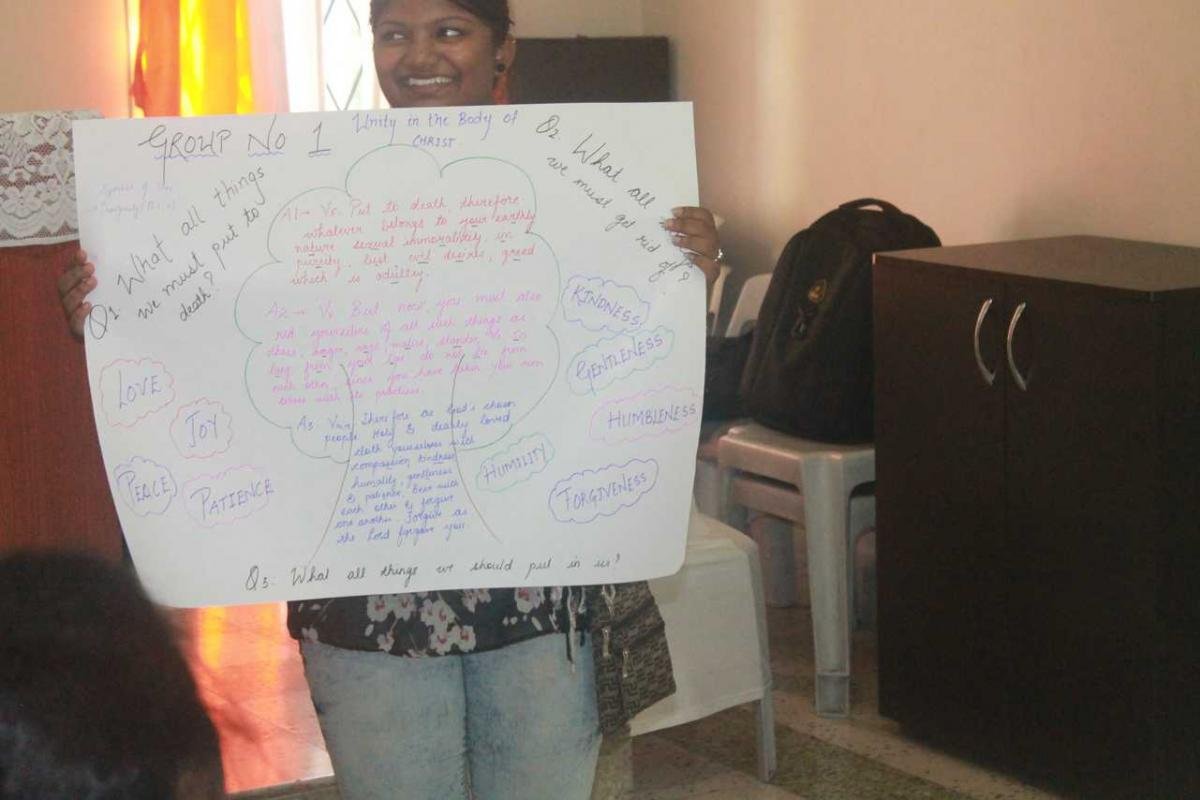 GROUP NO 1
Unity in the Body of
CHRIST
Q1. What all things
we must put to
death?
Q2. What all
we must get rid of?
A1→ V5. Put to death, therefore
whatever belongs to your earthly
nature sexual immorality, im
purity, lust evil desires, greed
which is
A2→ V8 But now you must also
rid yourselves of all such things as
these, anger, rage, malice, slander,
from your lips do not lie from
each other, since you have your
with its practices.
A3. Therefore as God's chosen
people Holy & dearly loved
cloth yourselves with
compassion, kindness
humality, gentleness
& patience. Bear with
each other & forgive
one another. Forgive as
the Lord forgave you.
LOVE
JOY
PEACE
PATIENCE
KINDNESS
GENTLENESS
HUMBLENESS
HUMILITY
FORGIVENESS
Q3. What all things we should put in us?